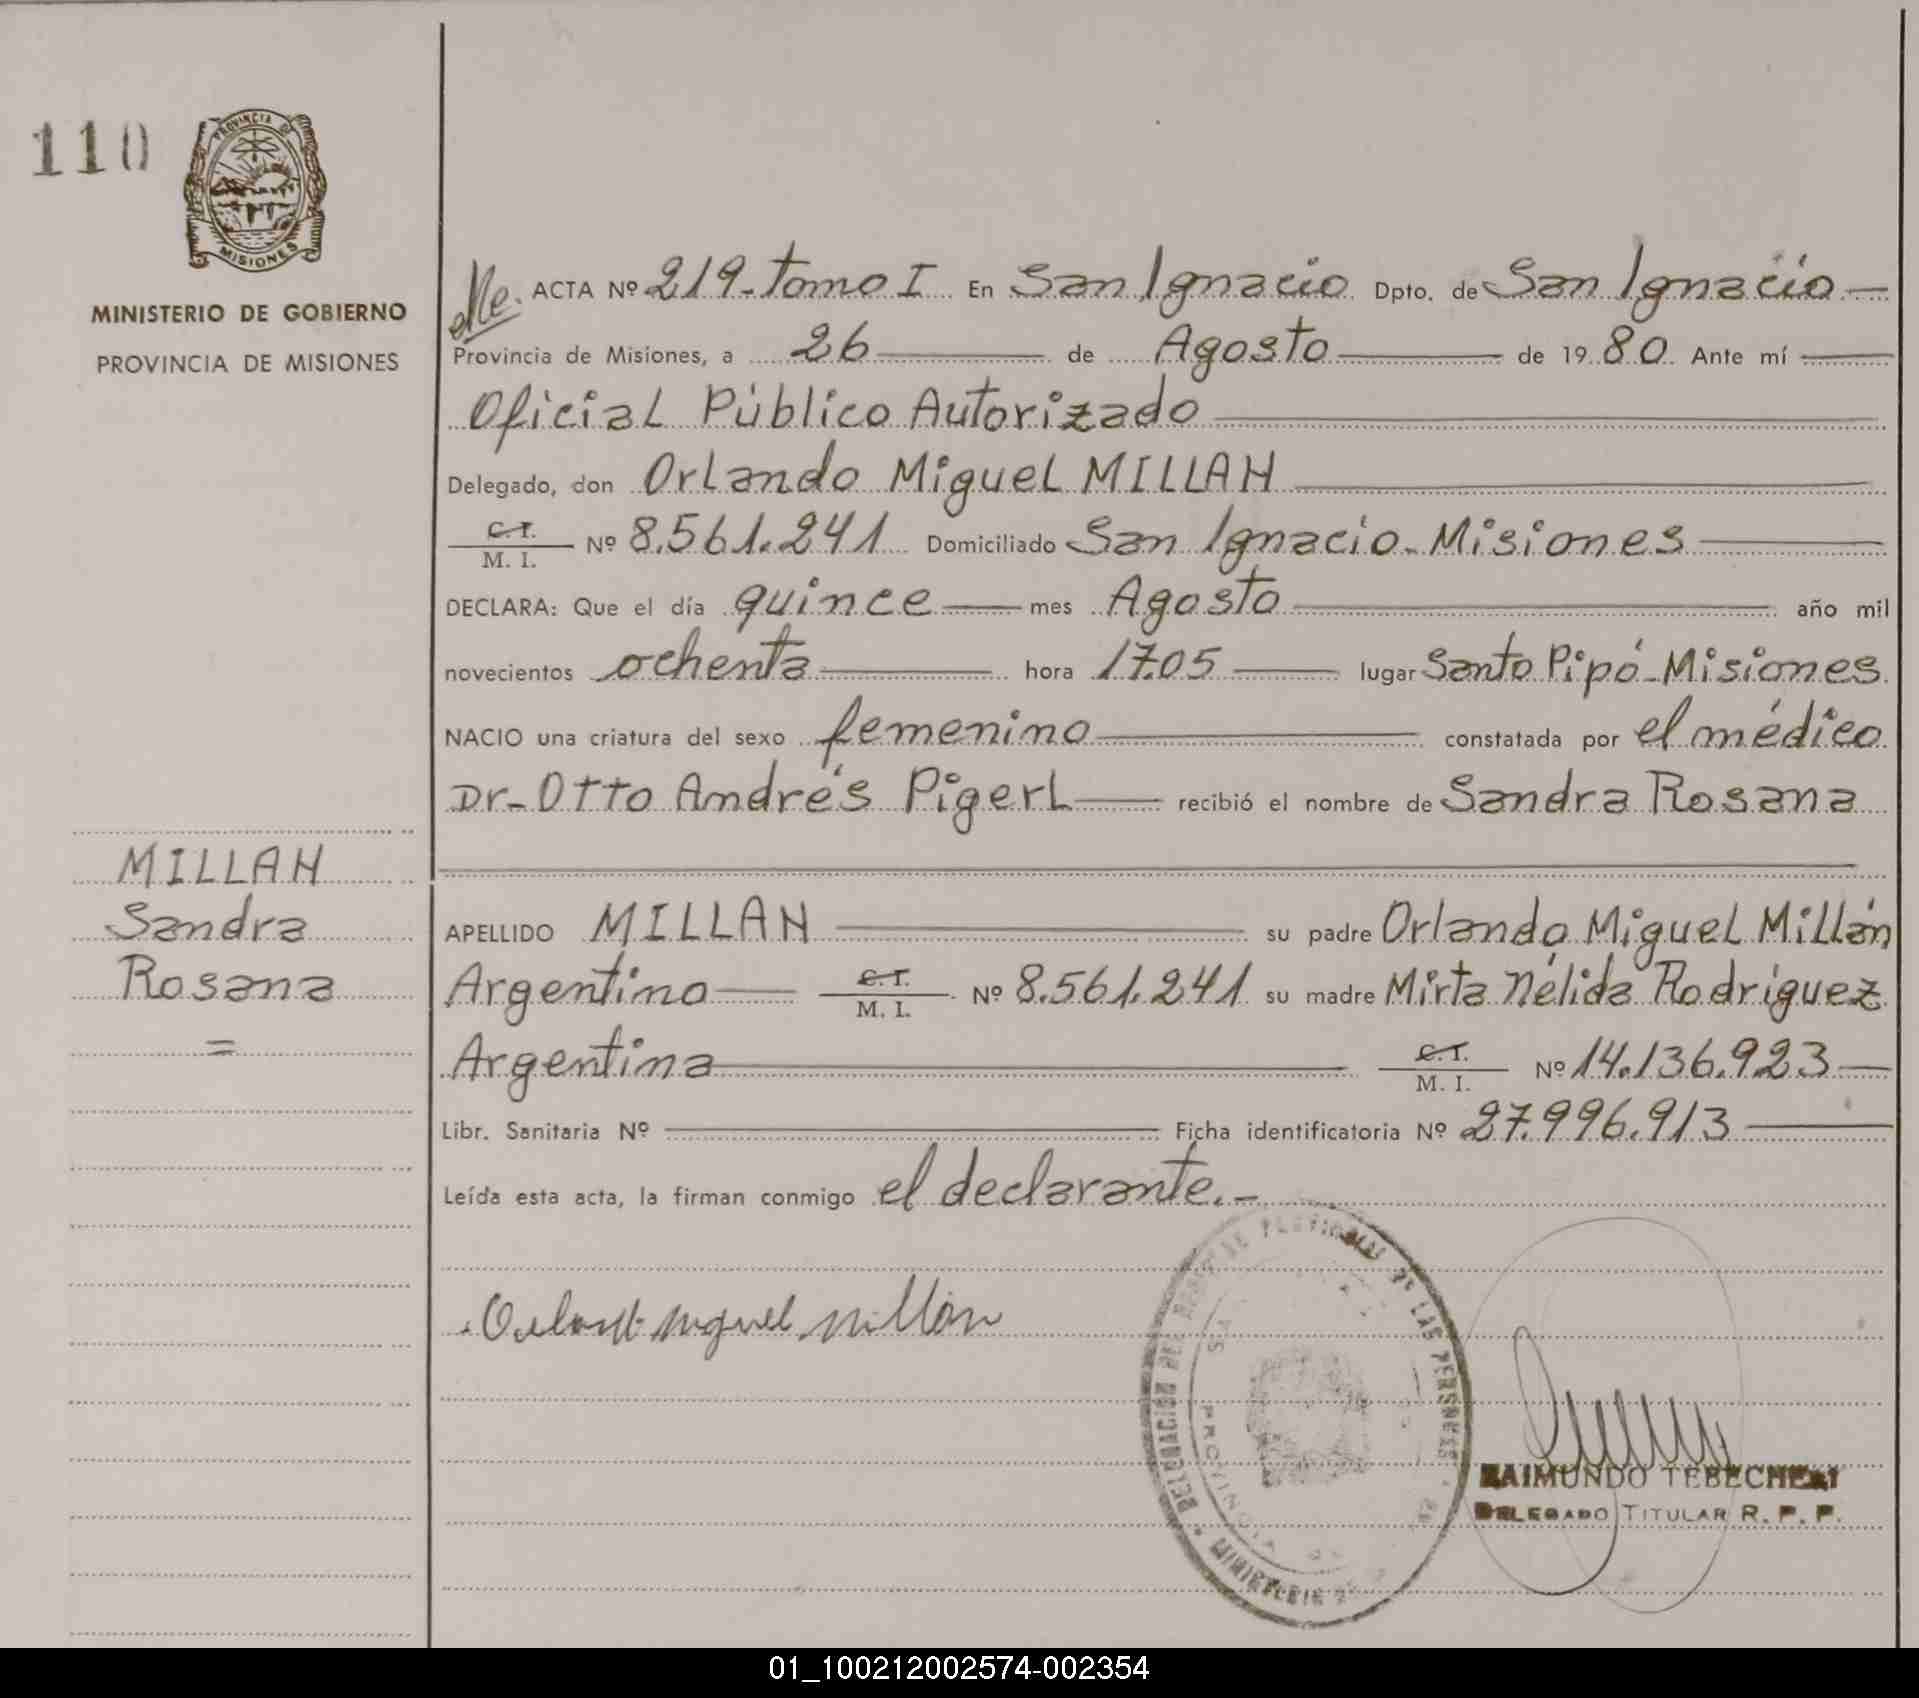 110
PROVINCIA DE
MISIONES
MINISTERIO DE GOBIERNO
PROVINCIA DE MISIONES
MILLAN
Sandra
Rosana
=
ACTA Nº 219-tomo I En San Ignacio Dpto. de San Ignacio —
Provincia de Misiones, a 26 — de Agosto — de 1980 Ante mí —
Oficial Público Autorizado —
Delegado, don Orlando Miguel MILLAN —
C.I. / M. I. Nº 8.561.241 Domiciliado San Ignacio - Misiones —
DECLARA: Que el día quince — mes Agosto — año mil
novecientos ochenta — hora 17.05 — lugar Santo Pipó - Misiones
NACIO una criatura del sexo femenino — constatada por el médico
Dr- Otto Andrés Pigerl — recibió el nombre de Sandra Rosana
APELLIDO MILLAN — su padre Orlando Miguel Millán
Argentino — C.I. / M. I. Nº 8.561.241 su madre Mirta Nélida Rodríguez
Argentina — C.I. / M. I. Nº 14.136.923 —
Libr. Sanitaria Nº — Ficha identificatoria Nº 27.996.913 —
Leída esta acta, la firman conmigo el declarante.-
Orlando Miguel Millán
DELEGACION DEL PROVINCIAL DE LAS PERSONAS
PROVINCIA
RAIMUNDO TEBECHERI
DELEGADO TITULAR R. P. P.
01_100212002574-002354